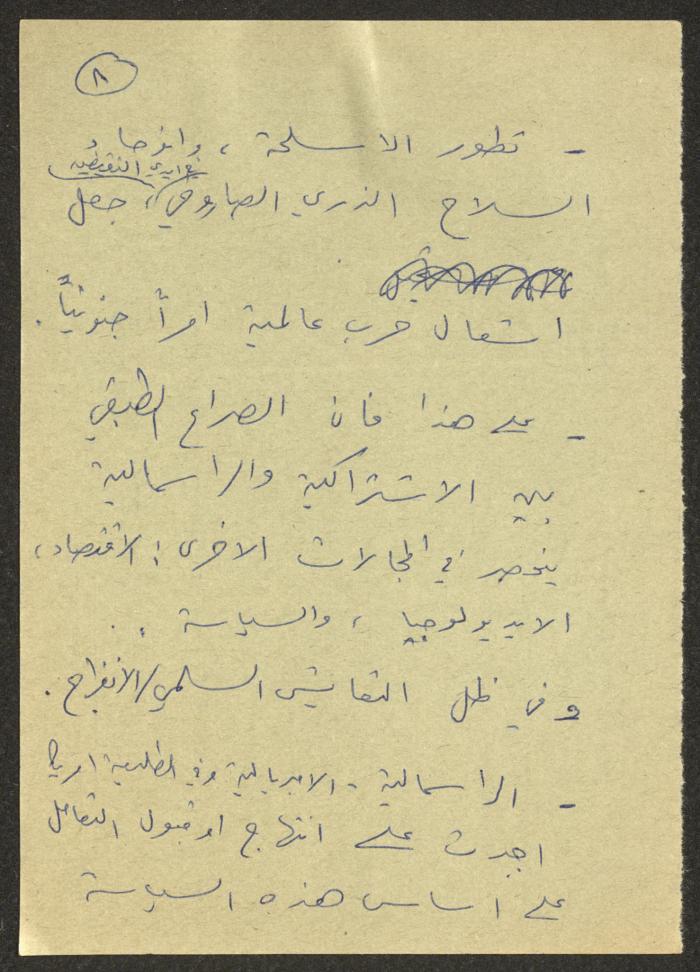 ٨
- تطور الاسلحة ، و
في ايدي النقيضين
السلاح الذري الصاروخي ، جعل
اشعال حرب عالمية امراً جنونياً .
- على هذا فان الصراع الطبقي
بين الاشتراكية والراسمالية
ينحصر في المجالات الاخرى : الاقتصاد ،
الايديولوجيا ، والسياسة .
وفي ظل التعايش السلمي / الانفراج .
- الراسمالية - الامبريالية وفي الطليعة امريكا
اجبرت على انتهاج او قبول التعامل
على اساس هذه السياسة